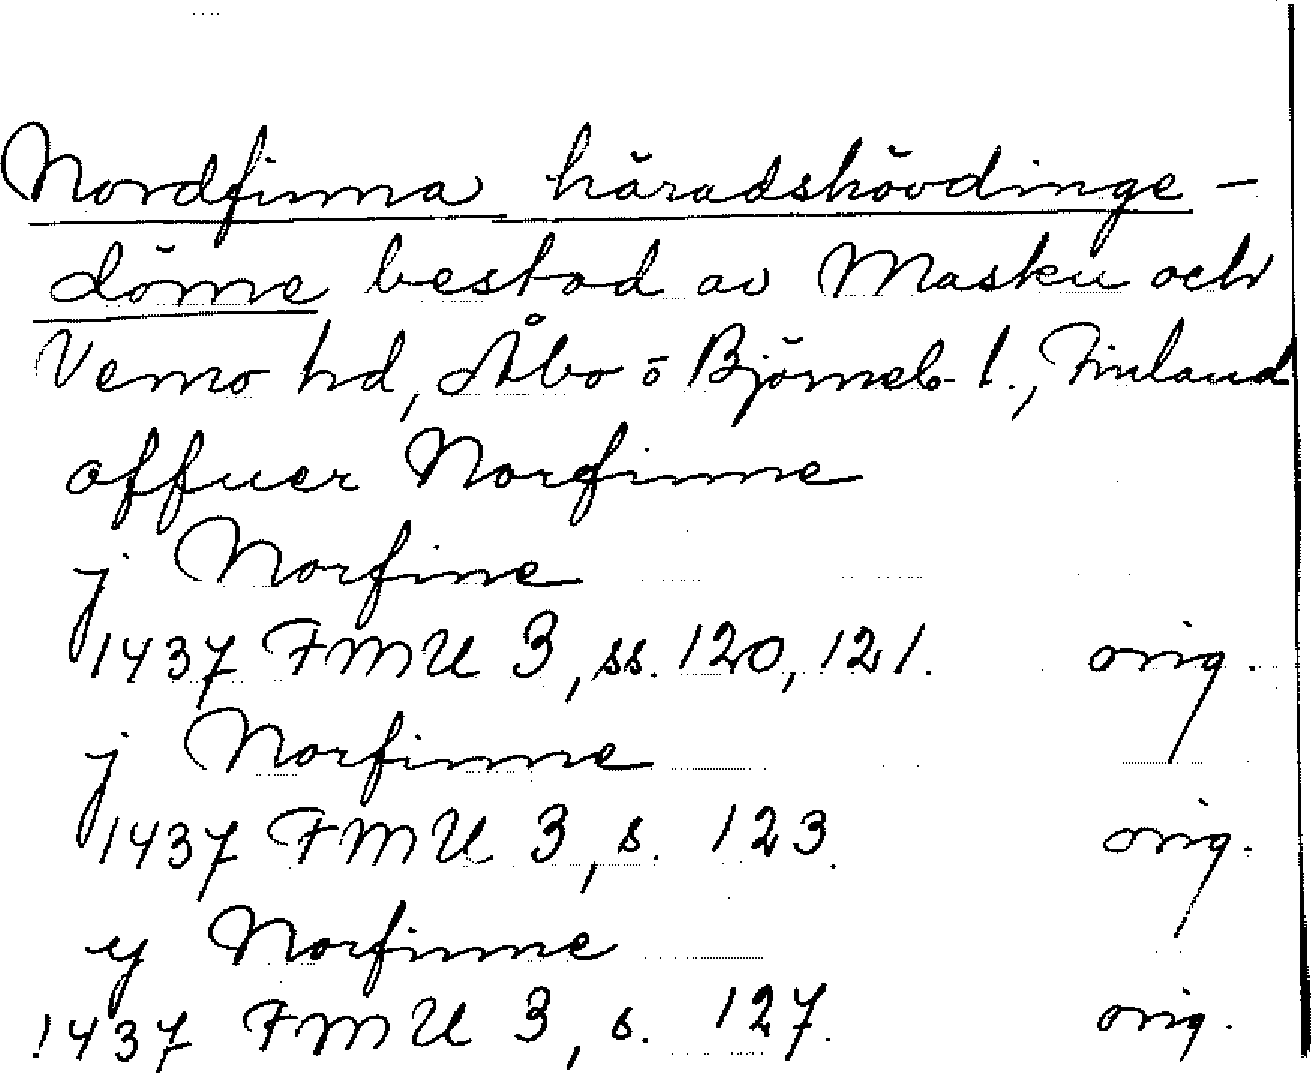 Nordfinna häradshövdinge-
döme bestod av Masku och
Vemo hd, Åbo o Björneb. l., Finland
offuer Norfinne
j Norfine
1437 FMU 3, ss. 120, 121. orig.
j Norfinne
1437 FMU 3, s. 123. orig.
y Norfinne
1437 FMU 3, s. 127. orig.